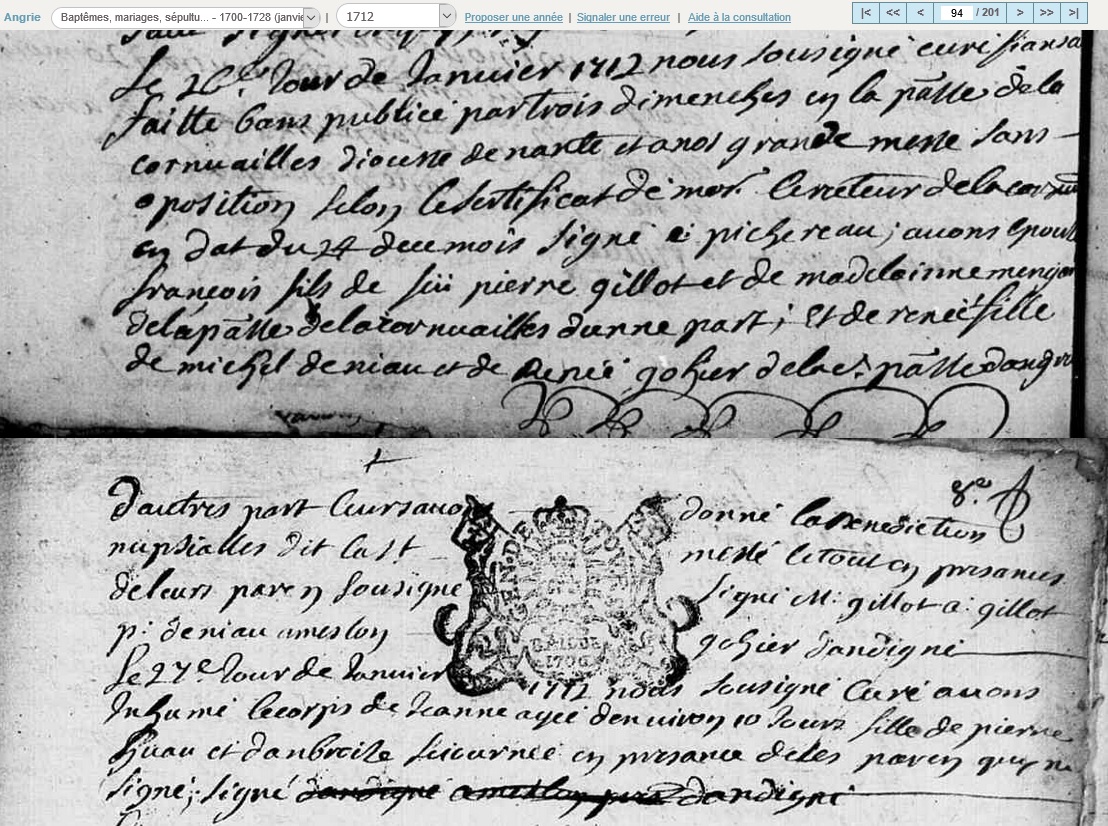 Angrie Baptêmes, mariages, sépultu... - 1700-1728 (janvie | 1712 Proposer une année | Signaler une erreur | Aide à la consultation |< << < 94 / 201 > >> >|
Le 26e Jour de Januier 1712 nous sousigné curé fiansa
faitte bans publiée par trois dimenches en la pâsse de la
cornuailles diocesse de nante et a nos grande messe sans
oposition selon le sertificat de mor le recteur de la
en dat du 24 du ce mois signé pichereau ; auons epou
francois fils de feü pierre gillot et de madelainne
de la pâsse de la cornuailles d'unne part ; Et de reneé fille
de michel deniau et de Reneé gohier de la pâsse
d'autres part Leurs auons donné la benediction
nupsialles dit la st messe le tout en presances
de leurs paren sousigne signé M. gillot a. gillot
p. deniau ameslon gohier d'andigné
Le 27e Jour de Januier 1712 nous sousigné Curé auons
Inhumé le corps de Jeanne ageé denuiron 10 Jours fille de pierre
huau et d'anbroise en presance de les paren qui ne
signe ; signé d'andigné
GEN. DE TOVRS
1706